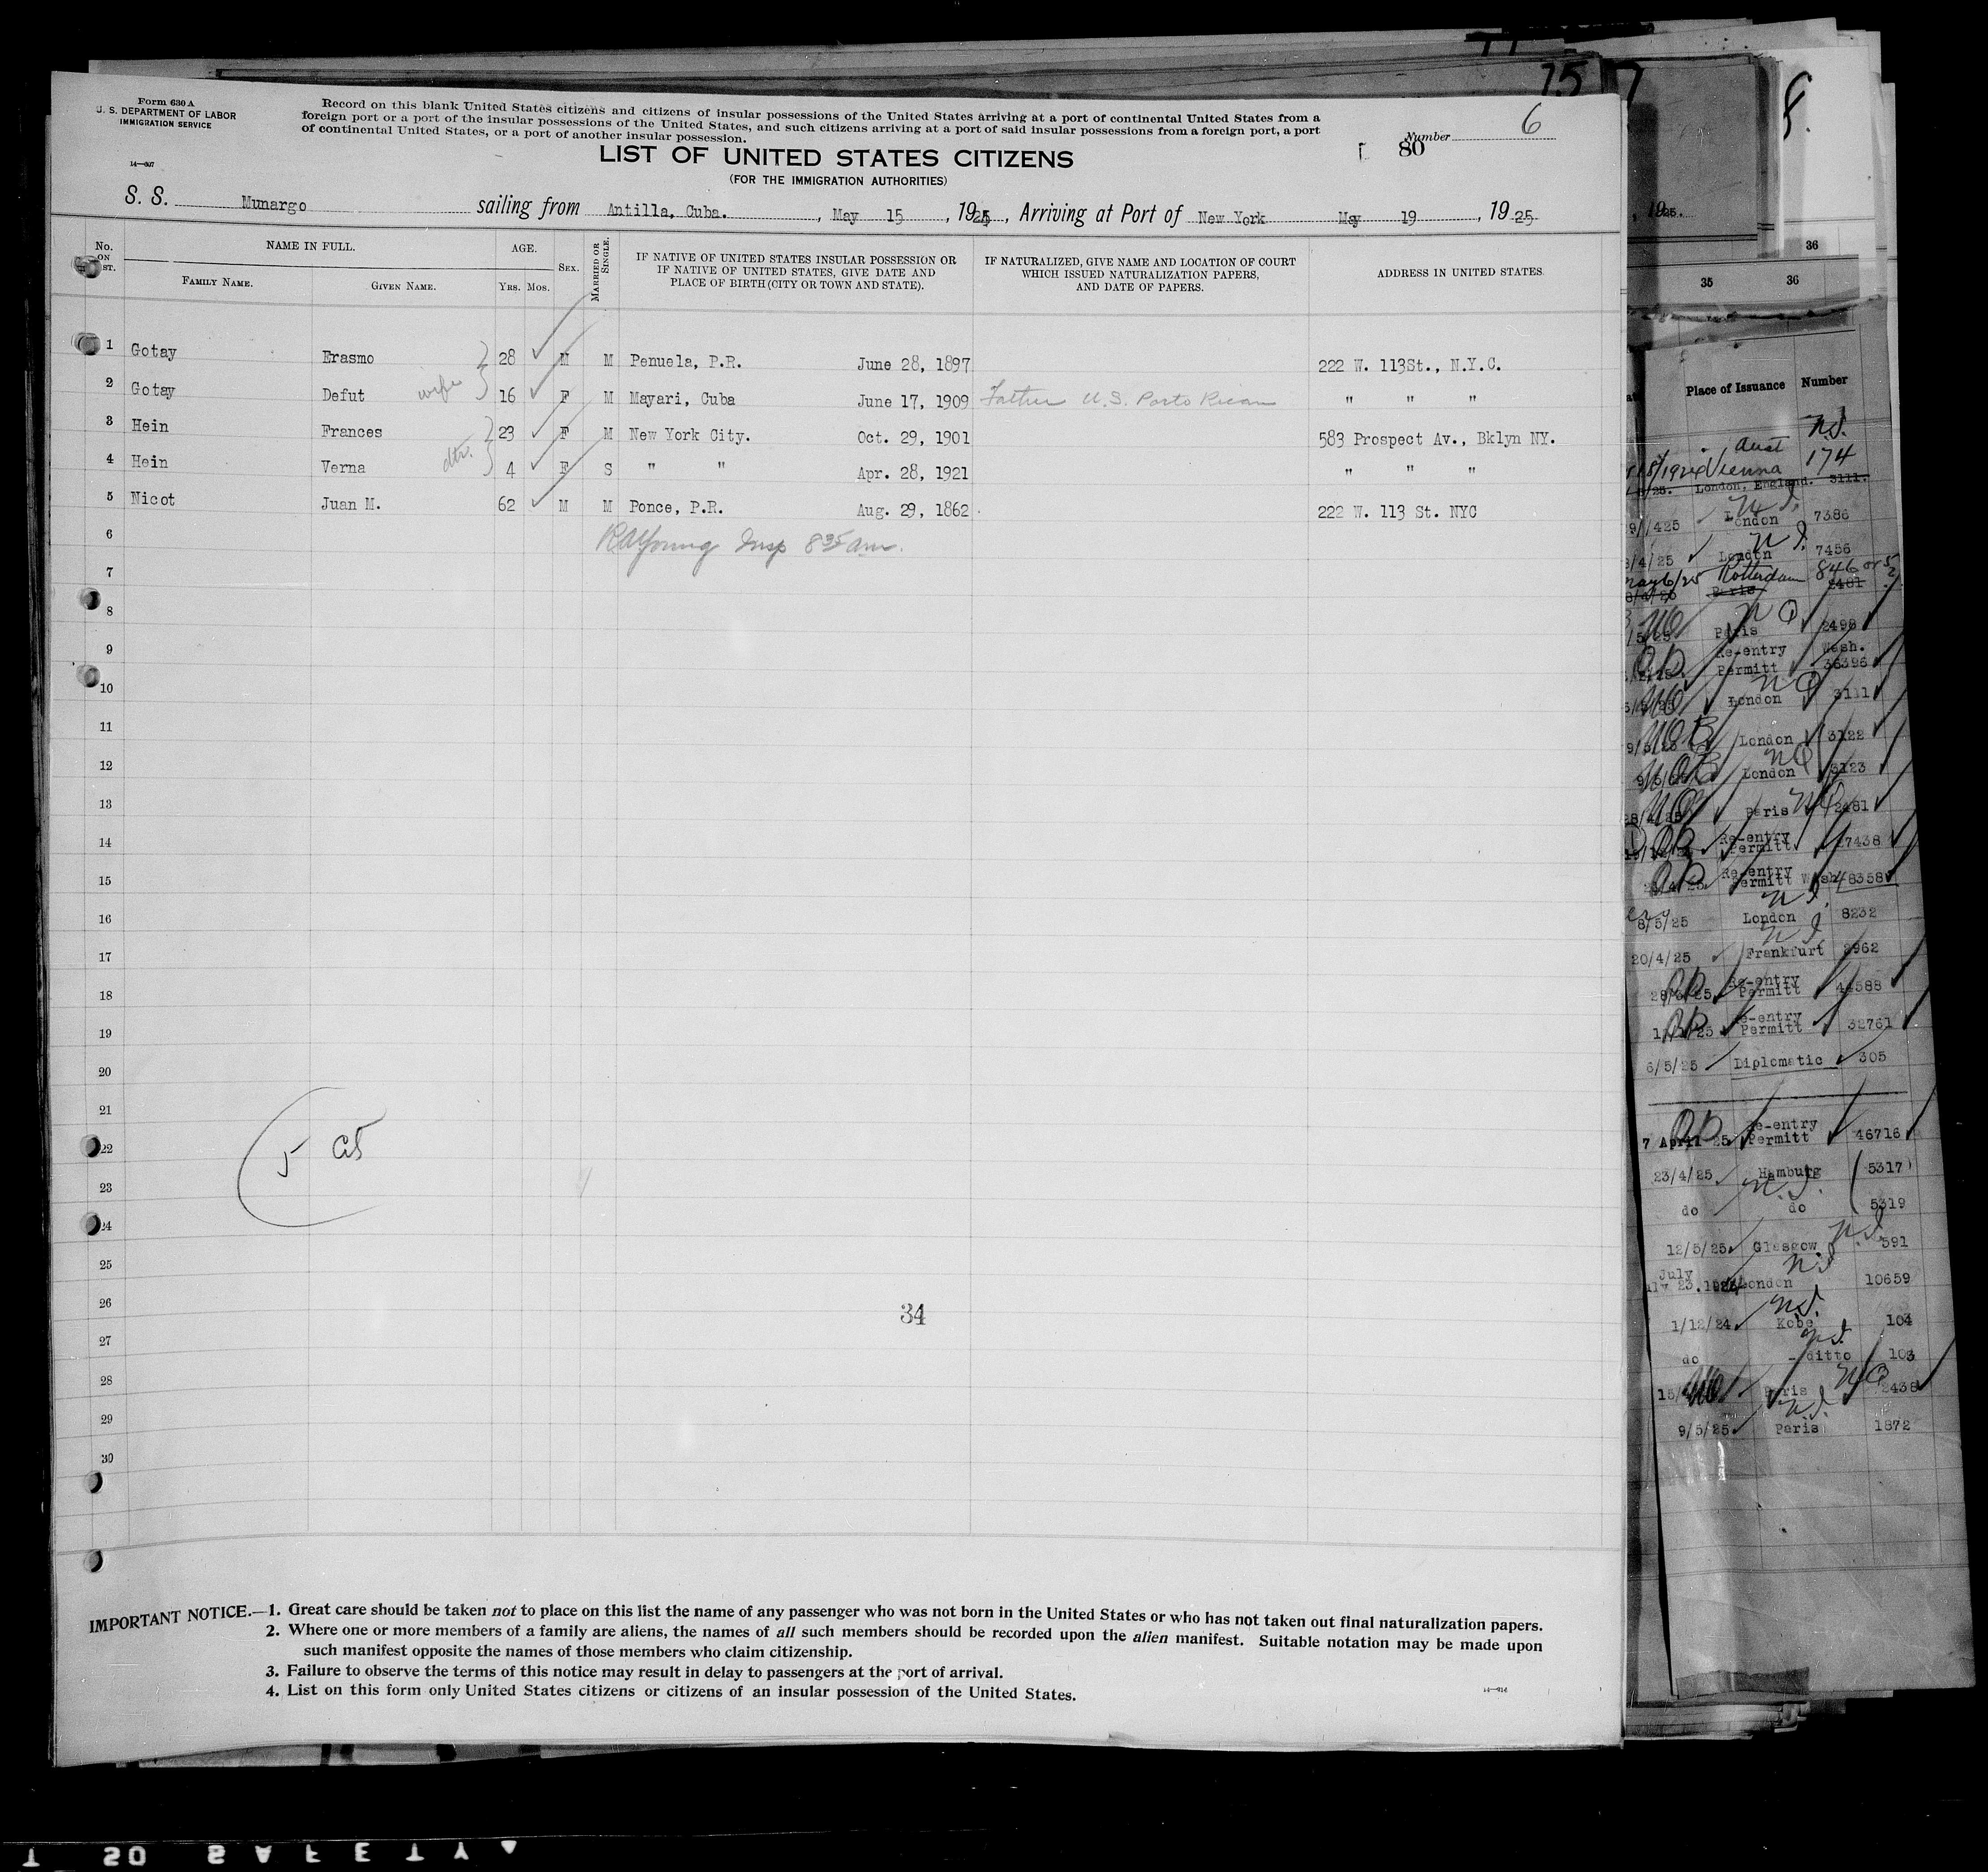 Form 630 A
U. S. DEPARTMENT OF LABOR
IMMIGRATION SERVICE
14—607
Record on this blank United States citizens and citizens of insular possessions of the United States arriving at a port of continental United States from a
foreign port or a port of the insular possessions of the United States, and such citizens arriving at a port of said insular possessions from a foreign port, a port
of continental United States, or a port of another insular possession.
Number 6
80
LIST OF UNITED STATES CITIZENS
(FOR THE IMMIGRATION AUTHORITIES)
S. S. Munargo sailing from Antilla, Cuba. , May 15 , 1925 , Arriving at Port of New York May 19 , 1925
No. ON LIST. NAME IN FULL. AGE. SEX. MARRIED OR SINGLE. IF NATIVE OF UNITED STATES INSULAR POSSESSION OR IF NATIVE OF UNITED STATES, GIVE DATE AND PLACE OF BIRTH (CITY OR TOWN AND STATE). IF NATURALIZED, GIVE NAME AND LOCATION OF COURT WHICH ISSUED NATURALIZATION PAPERS, AND DATE OF PAPERS. ADDRESS IN UNITED STATES.
FAMILY NAME. GIVEN NAME. YRS. MOS.
1 Gotay Erasmo 28 M M Penuela, P.R. June 28, 1897 222 W. 113St., N.Y.C.
2 Gotay Defut wife 16 F M Mayari, Cuba June 17, 1909 Father U.S. Porto Rican " " "
3 Hein Frances 23 F M New York City. Oct. 29, 1901 583 Prospect Av., Bklyn NY.
4 Hein Verna dtr. 4 F S " " Apr. 28, 1921 " " "
5 Nicot Juan M. 62 M M Ponce, P.R. Aug. 29, 1862 222 W. 113 St. NYC
6 Young Insp 8 35 am.
7
8
9
10
11
12
13
14
15
16
17
18
19
20
21
22
23
24
25
26
27
28
29
30
5
34
IMPORTANT NOTICE.—1. Great care should be taken not to place on this list the name of any passenger who was not born in the United States or who has not taken out final naturalization papers.
2. Where one or more members of a family are aliens, the names of all such members should be recorded upon the alien manifest. Suitable notation may be made upon
such manifest opposite the names of those members who claim citizenship.
3. Failure to observe the terms of this notice may result in delay to passengers at the port of arrival.
4. List on this form only United States citizens or citizens of an insular possession of the United States.
36
35 36
Place of Issuance Number
Vienna 174
London, England. 3111.
London 7386
London 7456
Rotterdam 846
Paris 2481
Paris 2498
Re-entry Wash.
Permitt 36396
London 3111
London 3122
London 3123
Paris 2481
Re-entry
Permitt 7438
Re-entry
Permitt Wash 8358
8/5/25 London 8232
20/4/25 Frankfurt 2962
Re-entry
Permitt 44588
Re-entry
Permitt 32761
6/5/25 Diplomatic 305
7 April 25 Re-entry
Permitt 46716
23/4/25 Hamburg 5317
do do 5319
12/5/25 Glasgow 591
July 23. London 10659
1/12/24 Kobe 104
do ditto 103
Paris 2438
9/5/25 Paris 1872
SAFETY